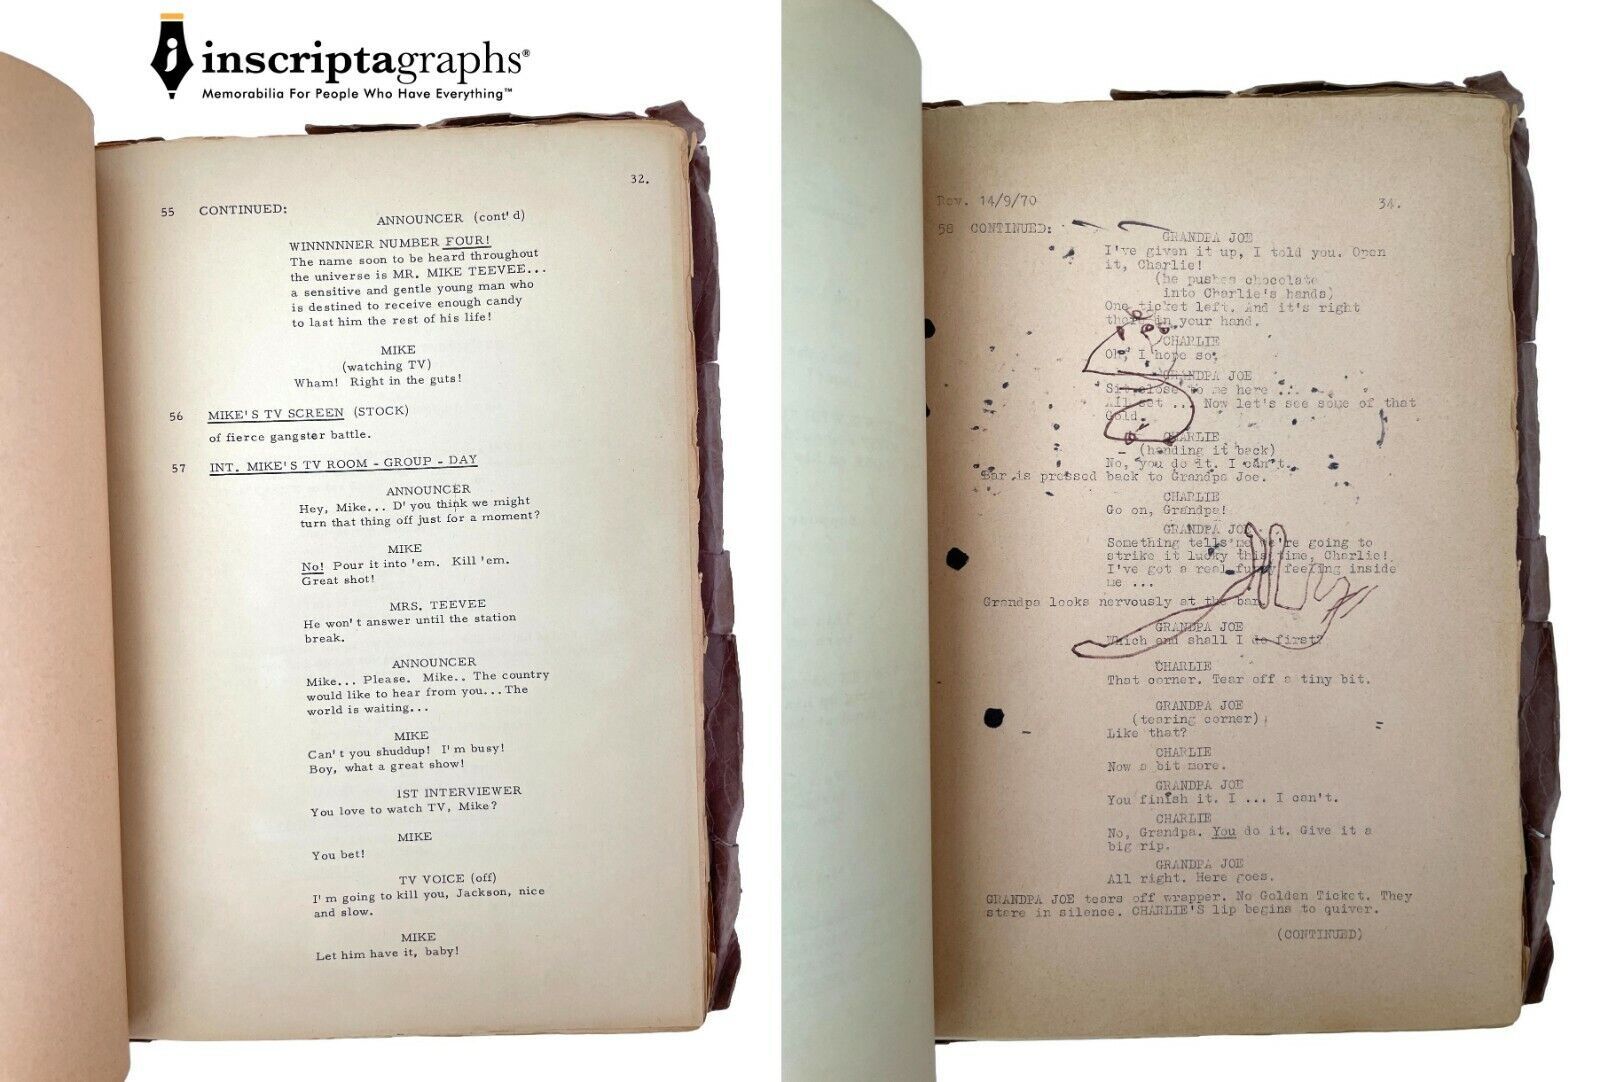 inscriptagraphs®
Memorabilia For People Who Have Everything™
32.
55 CONTINUED:
ANNOUNCER (cont'd)
WINNNNNER NUMBER FOUR!
The name soon to be heard throughout
the universe is MR. MIKE TEEVEE...
a sensitive and gentle young man who
is destined to receive enough candy
to last him the rest of his life!
MIKE
(watching TV)
Wham! Right in the guts!
56 MIKE'S TV SCREEN (STOCK)
of fierce gangster battle.
57 INT. MIKE'S TV ROOM - GROUP - DAY
ANNOUNCER
Hey, Mike... D'you think we might
turn that thing off just for a moment?
MIKE
No! Pour it into 'em. Kill 'em.
Great shot!
MRS. TEEVEE
He won't answer until the station
break.
ANNOUNCER
Mike... Please. Mike.. The country
would like to hear from you...The
world is waiting...
MIKE
Can't you shuddup! I'm busy!
Boy, what a great show!
1ST INTERVIEWER
You love to watch TV, Mike?
MIKE
You bet!
TV VOICE (off)
I'm going to kill you, Jackson, nice
and slow.
MIKE
Let him have it, baby!
Rev. 14/9/70
34.
58 CONTINUED:
GRANDPA JOE
I've given it up, I told you. Open
it, Charlie!
(he pushes chocolate
into Charlie's hands)
One ticket left. And it's right
there in your hand.
CHARLIE
Oh, I hope so.
GRANDPA JOE
Sit close to me here ...
All set ... Now let's see some of that
Gold.
CHARLIE
(handing it back)
No, you do it. I can't.
Bar is pressed back to Grandpa Joe.
CHARLIE
Go on, Grandpa!
GRANDPA JOE
Something tells me we're going to
strike it lucky this time, Charlie!
I've got a real funny feeling inside
me ...
Grandpa looks nervously at the bar.
GRANDPA JOE
Which end shall I do first?
CHARLIE
That corner. Tear off a tiny bit.
GRANDPA JOE
(tearing corner)
Like that?
CHARLIE
Now a bit more.
GRANDPA JOE
You finish it. I ... I can't.
CHARLIE
No, Grandpa. You do it. Give it a
big rip.
GRANDPA JOE
All right. Here goes.
GRANDPA JOE tears off wrapper. No Golden Ticket. They
stare in silence. CHARLIE'S lip begins to quiver.
(CONTINUED)